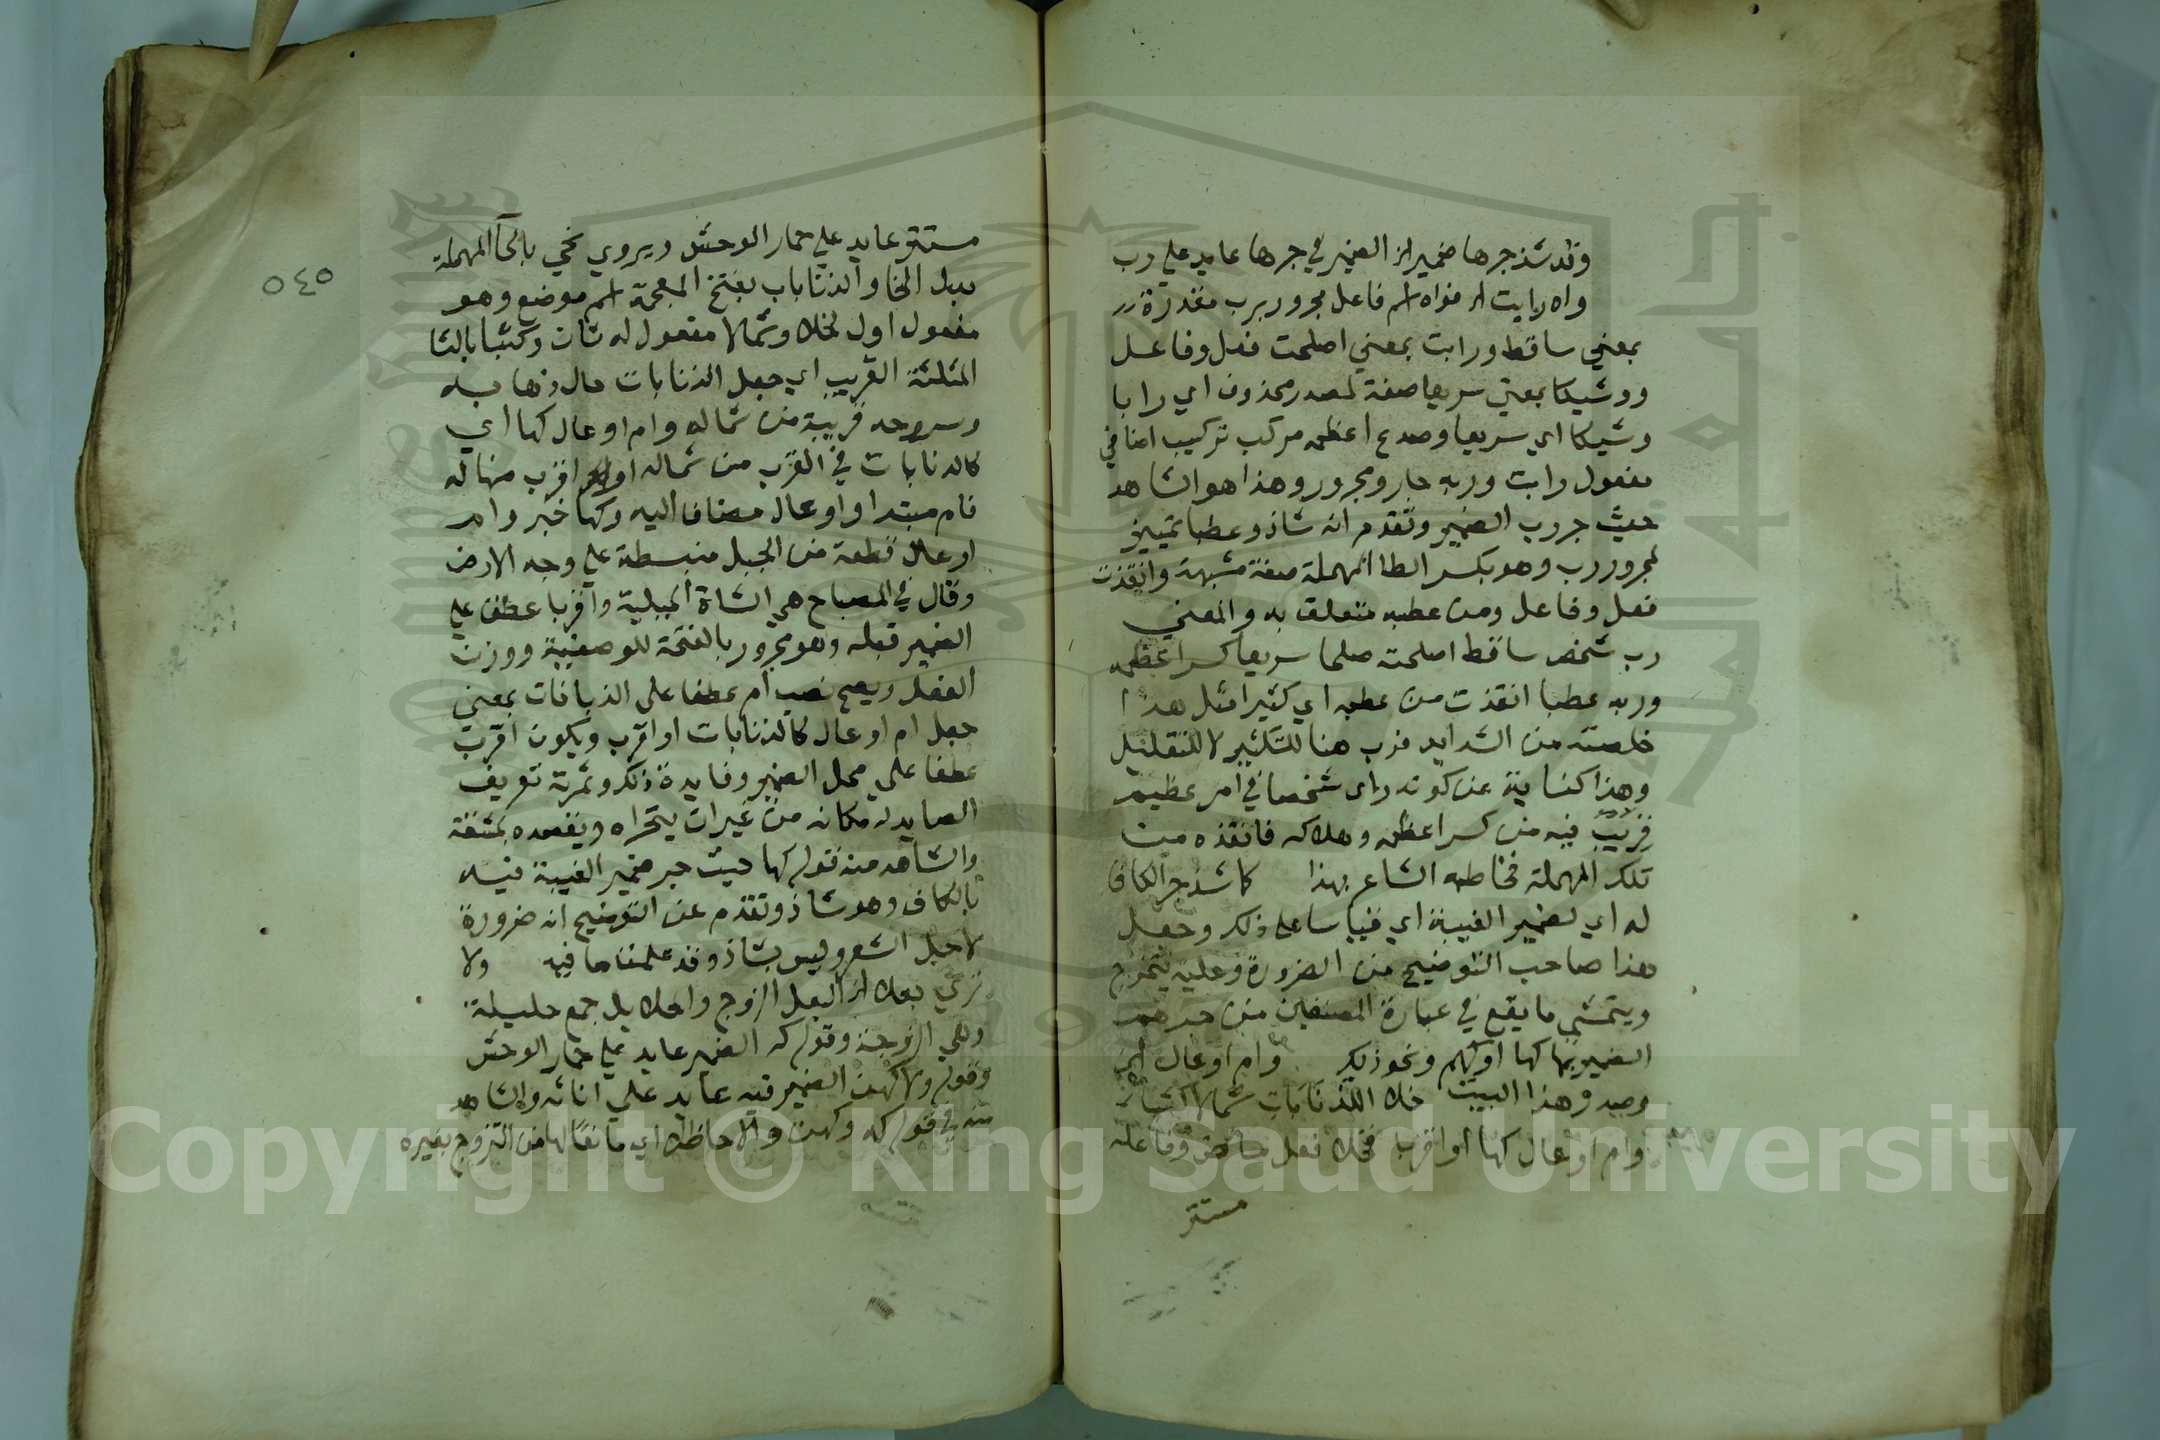 وقد شذ جرها ضمير الخ الضمير في جرها عايد على رب
واه رايت الخ فواه اسم فاعل مجرور برب مقدرة
بمعني ساقط ورابت بمعني اصلحت فعل وفاعل
ووشيكا بمعني سريعا صفة لمصدر محذوف اي رابا
وشيكا اي سريعا وصدع اعظمه مركب تركيب اضافي
مفعول رابت وربه جار ومجرور وهذا هو الشاهد
حيث جر رب الضمير وتقدم انه شاذ وعطبا تمييز
لمجرور رب وهو بكسر الطا المهملة صفة مشبهة وانقذت
فعل وفاعل ومن عطبه متعلق به والمعني
رب شخص ساقط اصلحته صلحا سريعا كسر اعظمه
وربه عطبا انقذت من عطبه اي كثيرا مثل هذا
خلصته من الشدايد فرب هنا للتكثير لا للتقليل
وهذا كناية عن كونه راى شخصا في امر عظيم
قريب فيه من كسر اعظمه وهلاكه فانقذه من
تلك المهملة فخاطبه الشاعر بهذا كما شذ جر الكاف
له اي لضمير الغيبة اي قياسا على ذلك وجعل
هذا صاحب التوضيح من الضرورة وعليه يتخرج
ويتمشي ما يقع في عبارة المصنفين من جرهم
الضمير بها كها او كهم ونحو ذلك وام اوعال الخ
وصدر هذا البيت خلا الذنابات شمالا كثبا
وام اوعال كها او اقربا فخلا فعل ماض وفاعله
مستتر
٥٤٥
مستتر عايد على حمار الوحش ويروي نحي بالحآ المهملة
بدل الخا والذنابات بفتح المعجمة اسم موضع وهو
مفعول اول لخلا وشمالا مفعول له ثان وكثبا بالثا
المثلثة القريب اي جعل الذنابات حال ذهابه
وسروحه قريبة من شماله وام اوعال كها اي
كالذنابات في القرب من شماله او اقرب منها له
فام مبتدا واوعال مضاف اليه وكها خبر وام
اوعال قطعة من الجبل منبسطة على وجه الارض
وقال في المصباح هي الشاة الجبلية واقربا عطف على
الضمير قبله وهو مجرور بالفتحة للوصفية ووزن
الفعل ويصح نصب ام عطفا على الذبافات بمعني
جعل ام اوعال كالذنابات او اقرب ويكون اقرب
عطفا على محل الضمير وفايدة ذلك وثمرته تعريف
الصايد له مكانه من غير ان يتحراه ويقصده بمشقة
والشاهد منه قوله كها حيث جر ضمير الغيبة فيه
بالكاف وهو شاذ وتقدم عن التوضيح انه ضرورة
لاجل الشعر وليس بشاذ وقد علمنا ما فيه ولا
تري بعلا الخ البعل الزوج واحلايل جمع حليلة
وهي الزوجة وقوله كه الضمير عايد على حمار الوحش
وقوله ولا كهن الضمير فيه عايد على اناثه والشاهد
منه في قوله كه وكهن والا حاظلا اي مانعا لها من التزوج بغيره